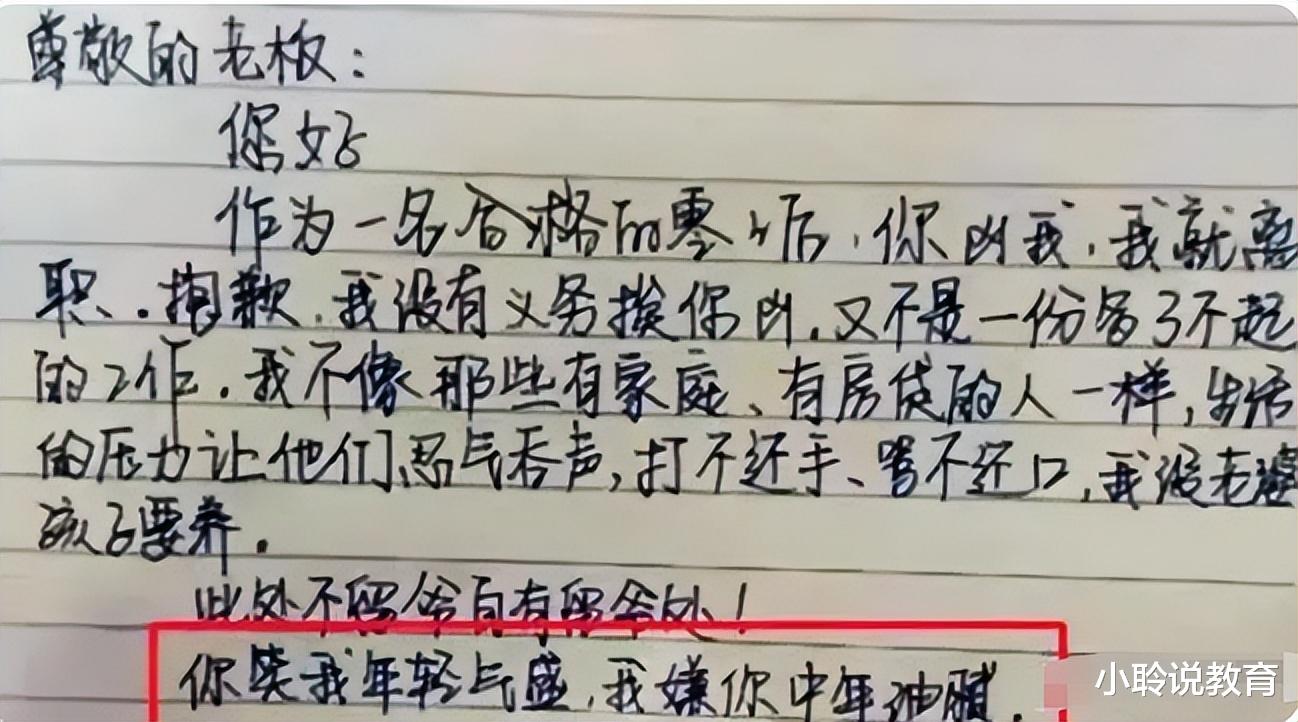 尊敬的老板：
您好
作为一名合格的零零后，你凶我，我就离
职。抱歉，我没有义务挨你凶，又不是一份多了不起
的工作。我不像那些有家庭、有房贷的人一样，生活
的压力让他们忍气吞声，打不还手、骂不还口，我没老婆
孩子要养。
此处不留爷自有留爷处！
你笑我年轻气盛，我嫌你中年油腻。
小聆说教育